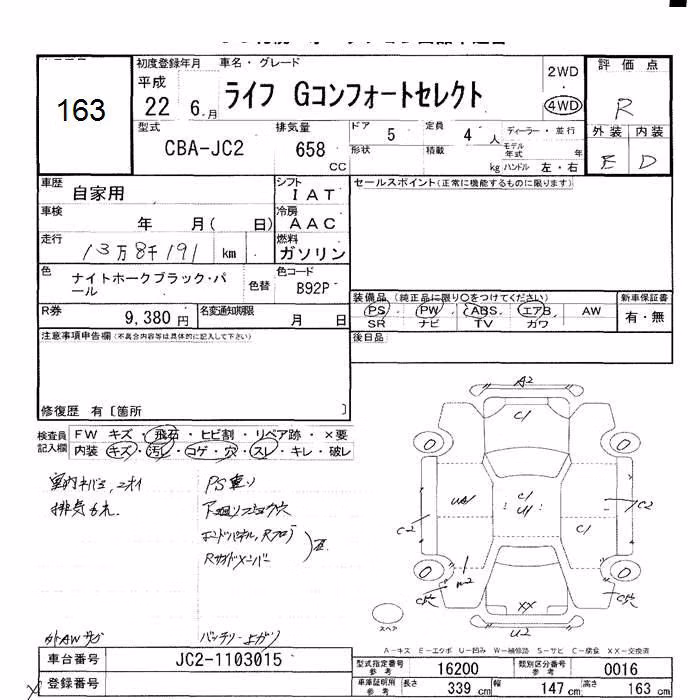 163
初度登録年月 車名・グレード
平成 22 6 月 ライフ Gコンフォートセレクト
2WD
4WD
評価点
R
外装 内装
E D
型式 CBA-JC2
排気量 658 CC
ドア 5 定員 4 人
形状 積載 kg
ディーラー・並行
モデル年式 年
ハンドル 左・右
車歴 自家用
シフト I A T
車検 年 月( 日)
冷房 A A C
走行 13万8千191 km
燃料 ガソリン
色 ナイトホークブラック・パール
色替
色コード B92P
R券 9,380 円
名変通知期限 月 日
セールスポイント(正常に機能するものに限ります)
装備品 (純正品に限り○をつけてください)
PS PW ABS エアB AW
SR ナビ TV カワ
新車保証書
有・無
後日品
注意事項申告欄(不具合内容等は具体的に記入して下さい)
修復歴 有〔箇所 〕
検査員記入欄
FW キズ・飛石・ヒビ割・リペア跡・×要
内装 キズ・汚レ・コゲ・穴・スレ・キレ・破レ
排気もれ
PS重り
外AWサビ
バッテリー上がり
A2
C1
0 0
UA1
C1
U1
C2
C2
C1
0 0
XX
U2
スペア
A-キズ E-エクボ U-凹み W-補修跡 S-サビ C-腐食 XX-交換済
車台番号 JC2-1103015
登録番号
型式指定番号 参考 16200
類別区分番号 参考 0016
車庫証明用 参考 長さ 339 cm 幅 147 cm 高さ 163 cm